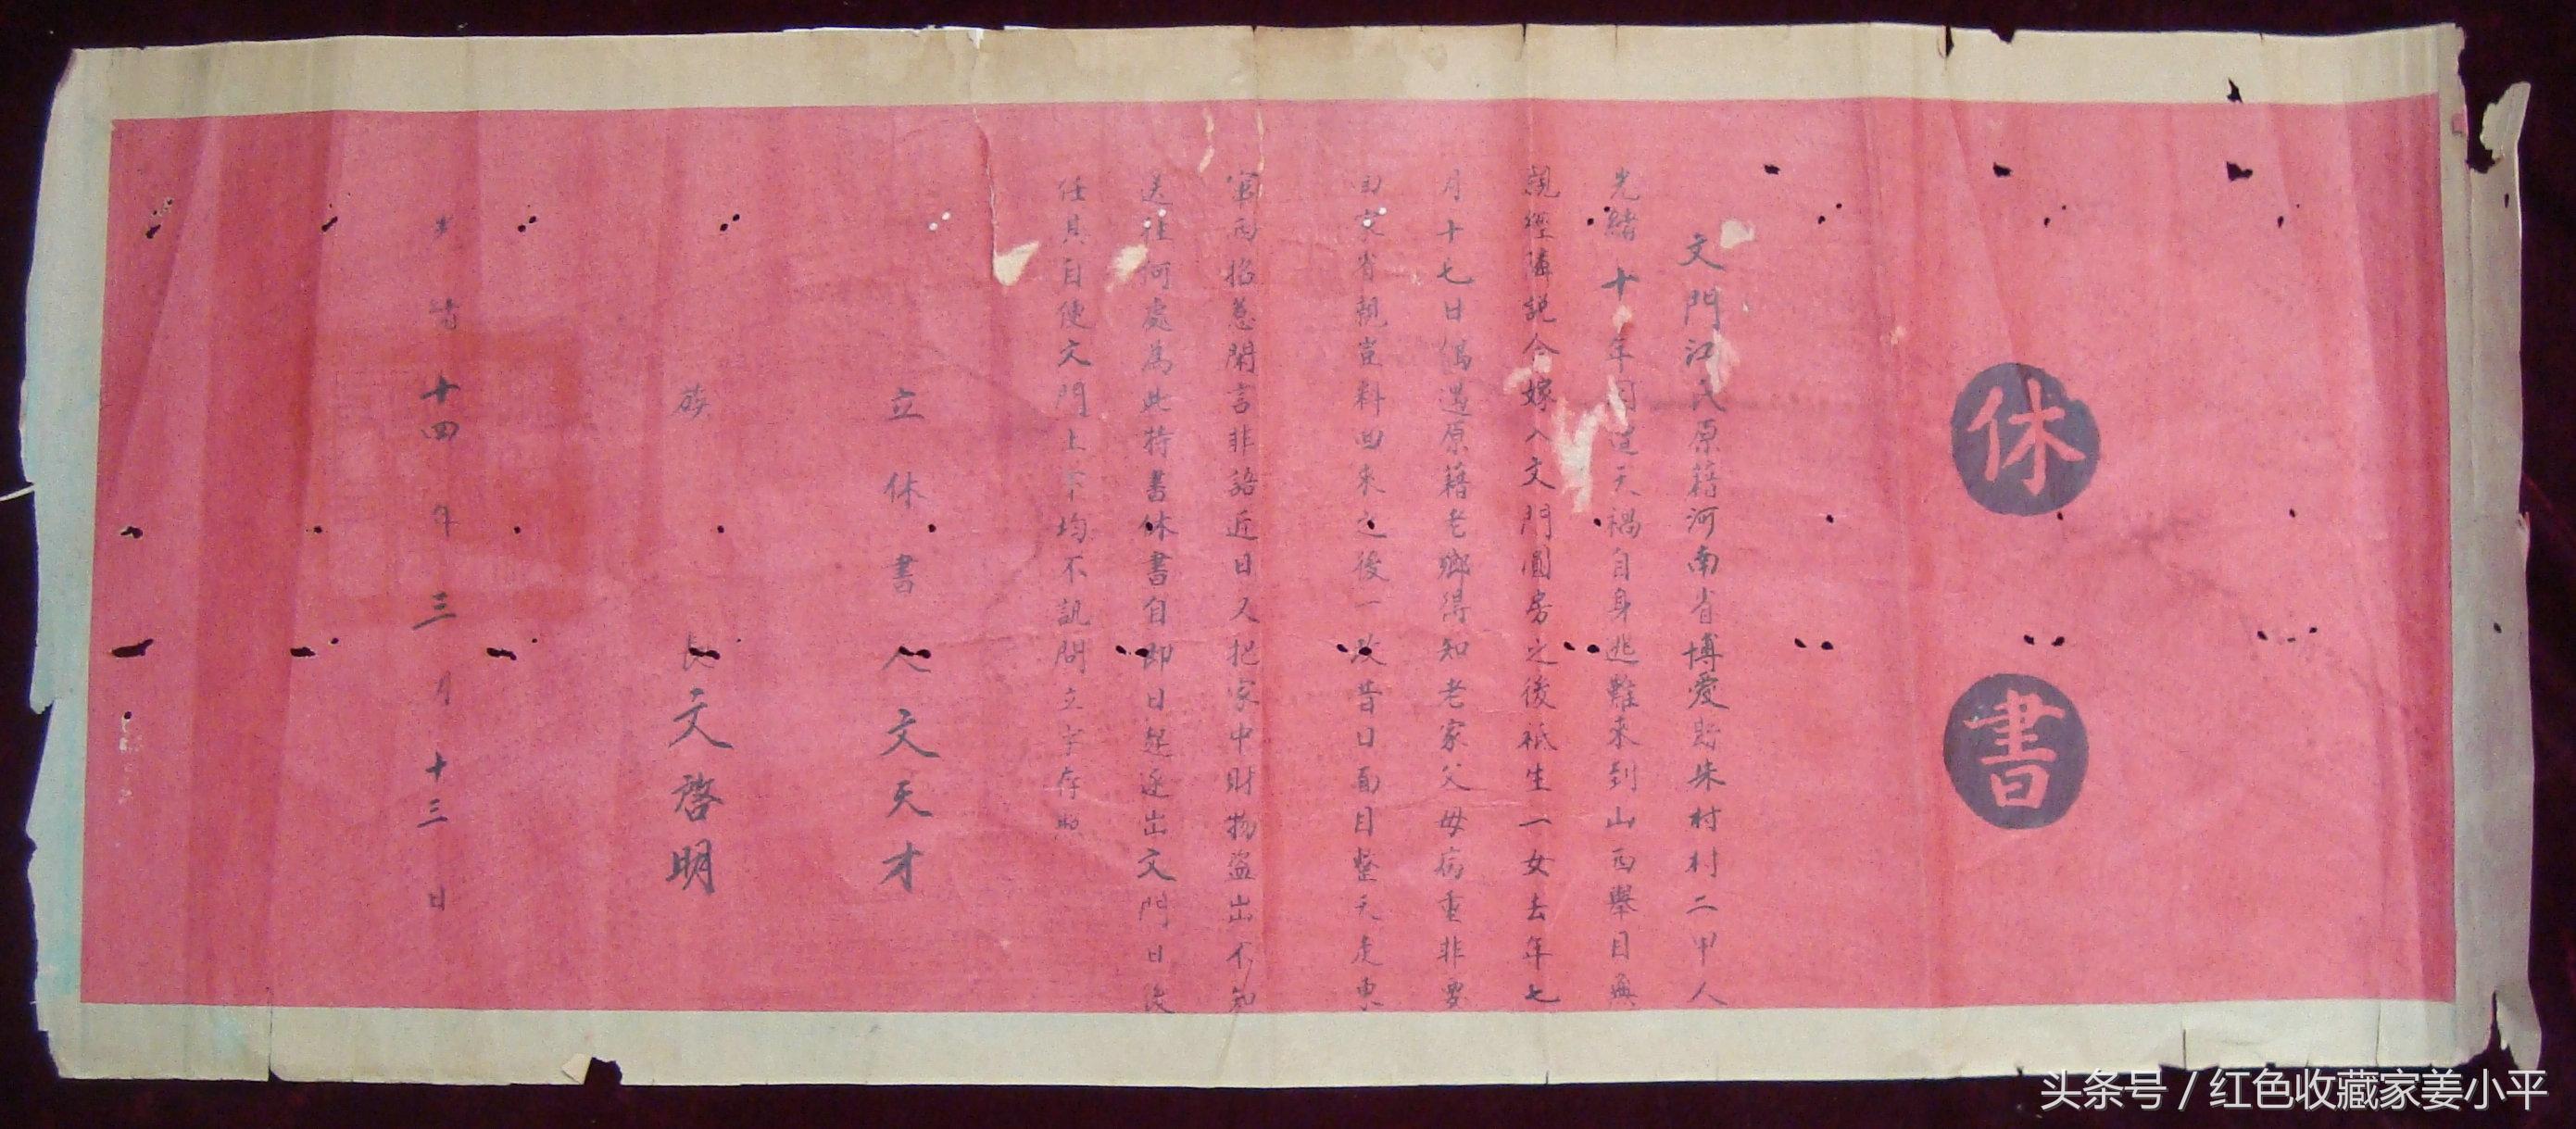 休書
文門江氏原籍河南省博愛縣朱村村二甲人
光緒十年因遭天禍自身逃難來到山西舉目無
親經隣説合嫁入文門圓房之後衹生一女去年七
月十七日偶遇原藉老鄉得知老家父母病重非要
回家省親豈料回來之後一改昔日面目整天走東
家西招惹閑言非語近日又把家中財物盜出不知
送往何處為此特書休書自即日起逐出文門日後
任其自便文門上下均不訊問立字存照
立休書人文天才
族長文啓明
光緒十四年三月十三日
头条号 / 红色收藏家姜小平